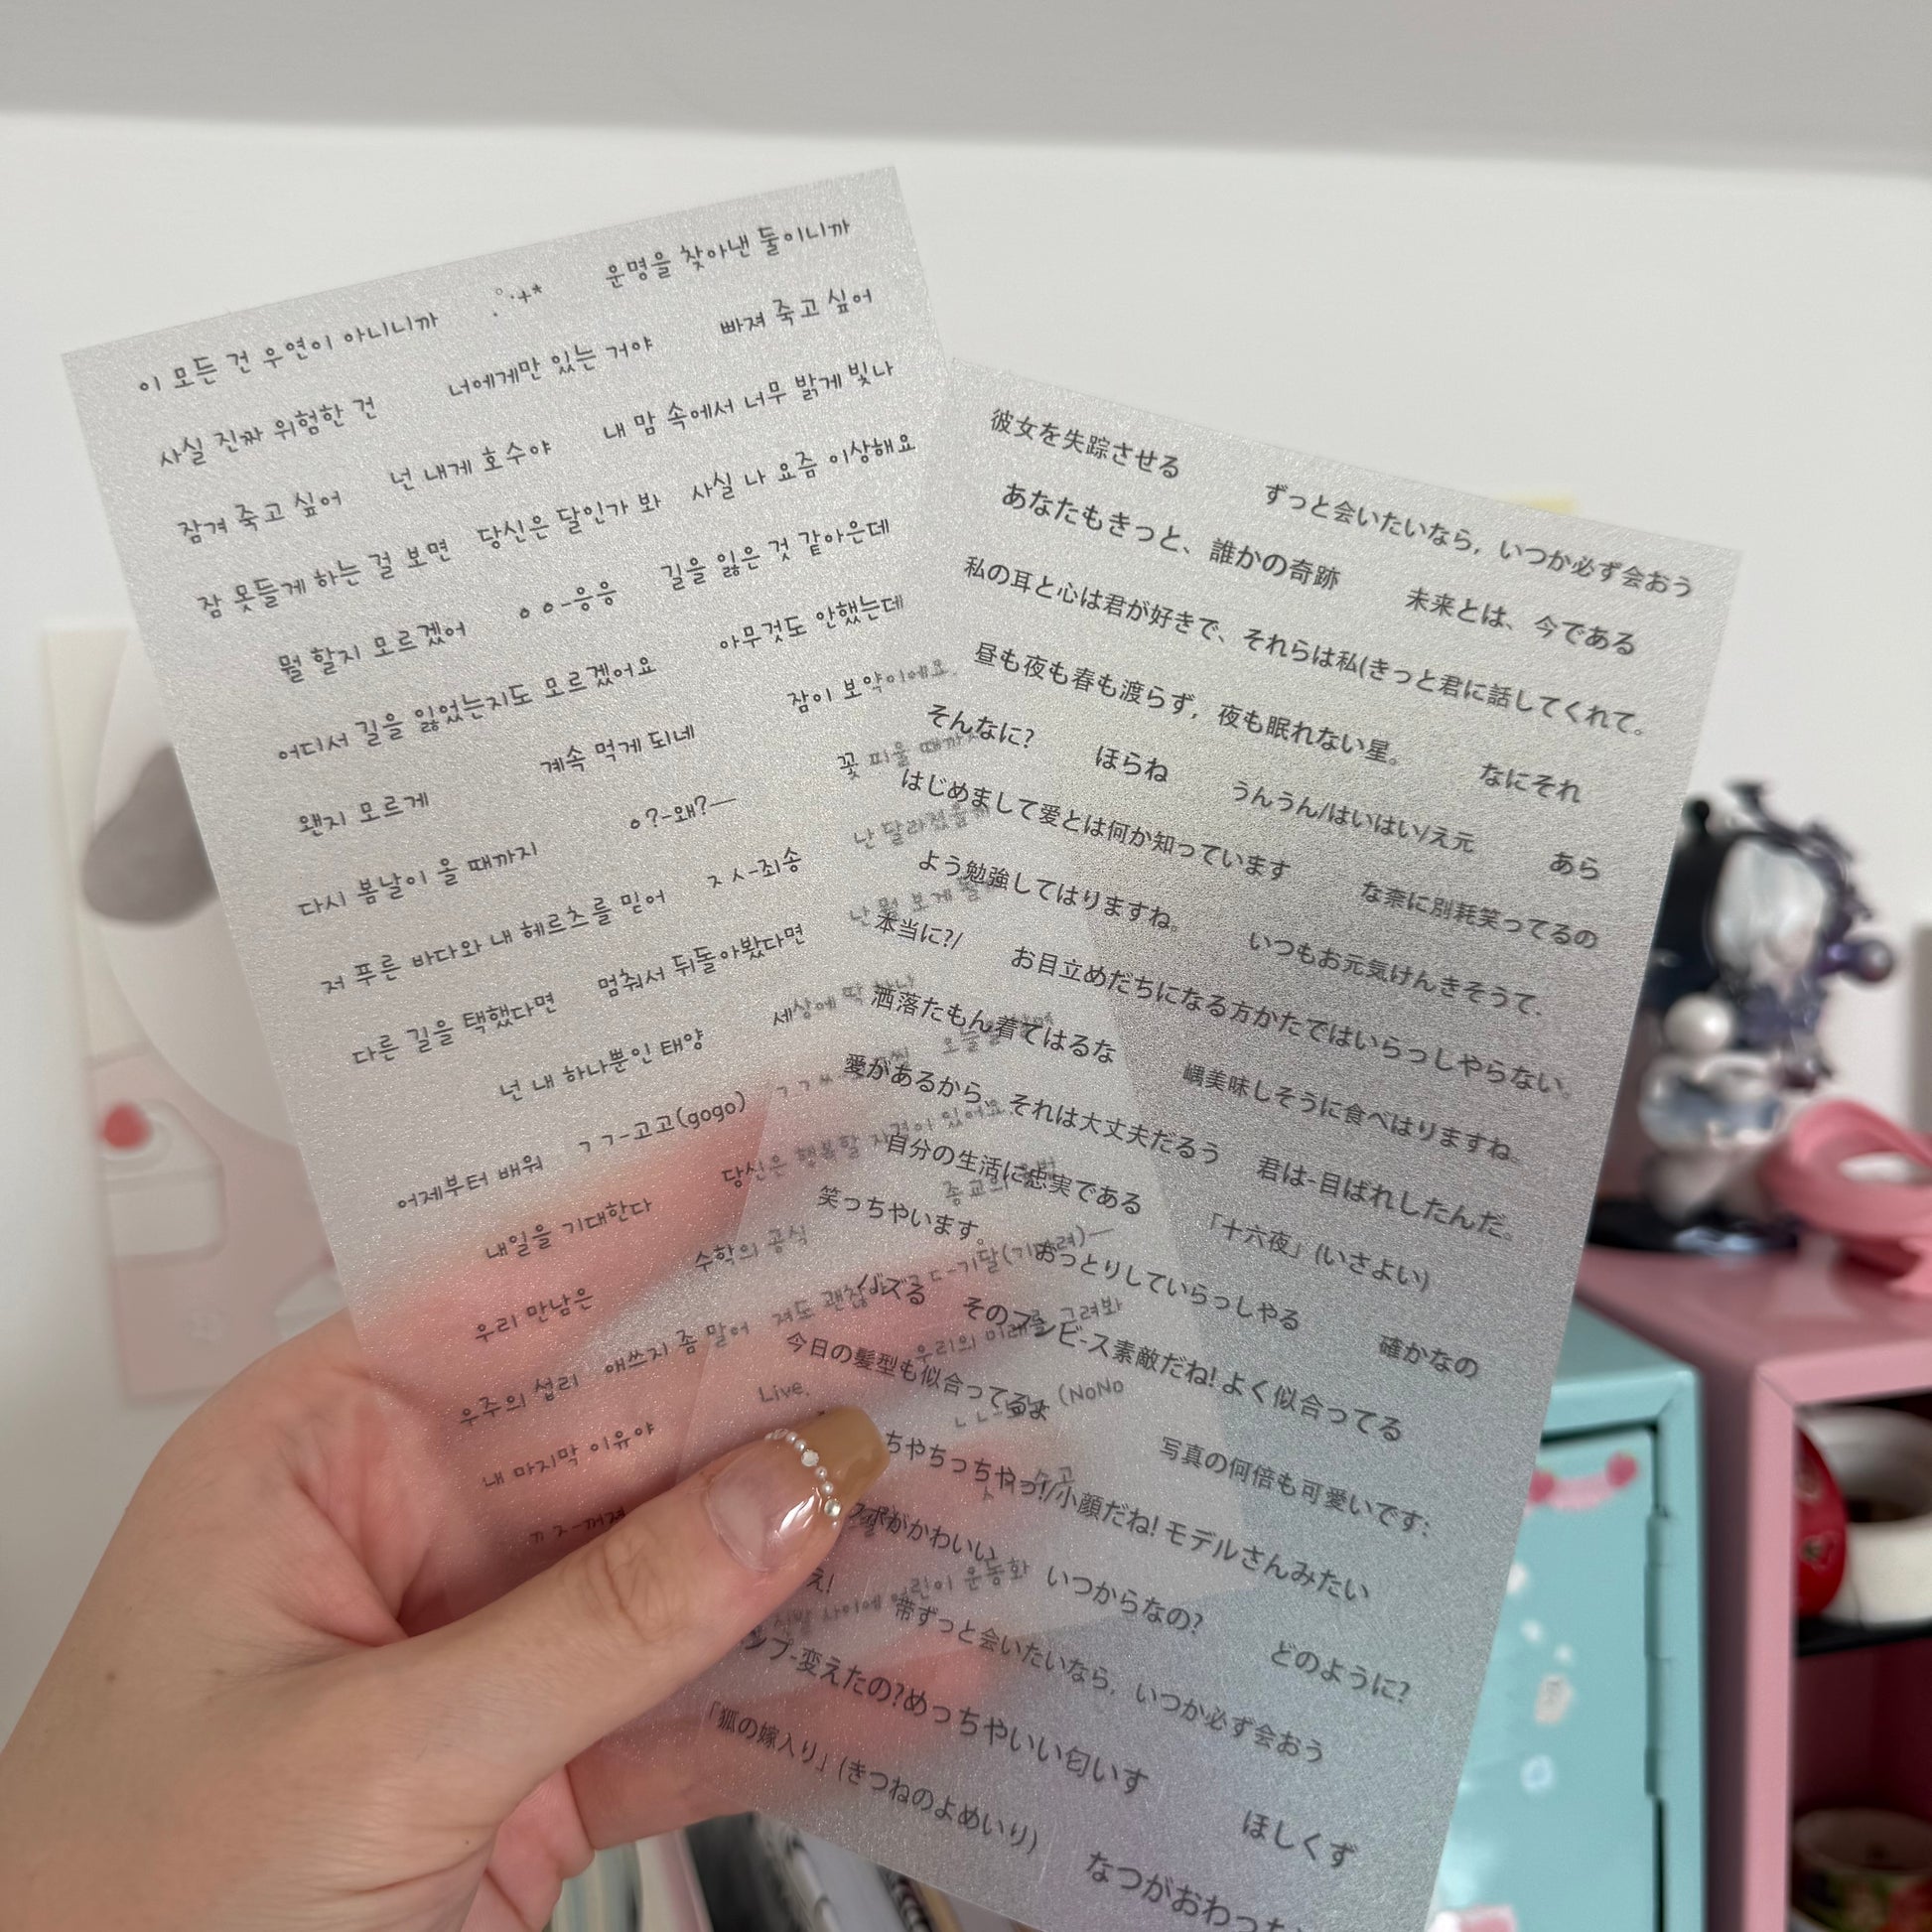 이 모든 건 우연이 아니니까 운명을 찾아낸 둘이니까
사실 진짜 위험한 건 너에게만 있는 거야 빠져 죽고 싶어
잠겨 죽고 싶어 넌 내게 호수야 내 맘 속에서 너무 밝게 빛나
잠 못들게 하는 걸 보면 당신은 달인가 봐 사실 나 요즘 이상해요
뭘 할지 모르겠어 ㅇㅇ-응응 길을 잃은 것 같아은데
어디서 길을 잃었는지도 모르겠어요 아무것도 안했는데
왠지 모르게 계속 먹게 되네 잠이 보약이에요.
다시 봄날이 올 때까지 ㅇ?-왜?― 꽃 피울 때까지
저 푸른 바다와 내 헤르츠를 믿어 ㅈㅅ-죄송 난 달라졌을까
다른 길을 택했다면 멈춰서 뒤돌아봤다면 난 뭘 보게 될까
넌 내 하나뿐인 태양 세상에 딱 하나
어제부터 배워 ㄱㄱ-고고(gogo)
내일을 기대한다 당신은 행복할 자격이 있어요.
우리 만남은 수학의 공식
우주의 섭리 애쓰지 좀 말어 져도 괜찮아
내 마지막 이유야 Live. 우리의 미래를 그려봐
ㄲㅈ-꺼져 (NoNo
彼女を失踪させる ずっと会いたいなら，いつか必ず会おう
あなたもきっと、誰かの奇跡 未来とは、今である
私の耳と心は君が好きで、それらは私(きっと君に話してくれて。
昼も夜も春も渡らず，夜も眠れない星。 なにそれ
そんなに? ほらね うんうん/はいはい/え元 あら
はじめまして爱とは何か知っています な奈に別耗笑ってるの
よう勉強してはりますね。 いつもお元気けんきそうて.
本当に?/ お目立めだちになる方かたではいらっしやらない。
洒落たもん着てはるな 美味しそうに食べはりますね。
愛があるから、それは大丈夫だるう 君は-目ばれしたんだ。
自分の生活に忠実である 「十六夜」(いさよい)
笑っちやいます。 おっとりしていらっしやる 確かなの
その ビ-ス素敵だね! よく似合ってる
今日の髪型も似合ってるよ 写真の何倍も可愛いです:
ちやちっちやっ!/小顔だね! モデルさんみたい
がかわいい いつからなの? どのように?
え! 帯ずっと会いたいなら，いつか必ず会おう
ンプ-変えたの?めっちやいい匂いす
「狐の嫁入り」(きつねのよめいり) ほしくず
なつがおわった